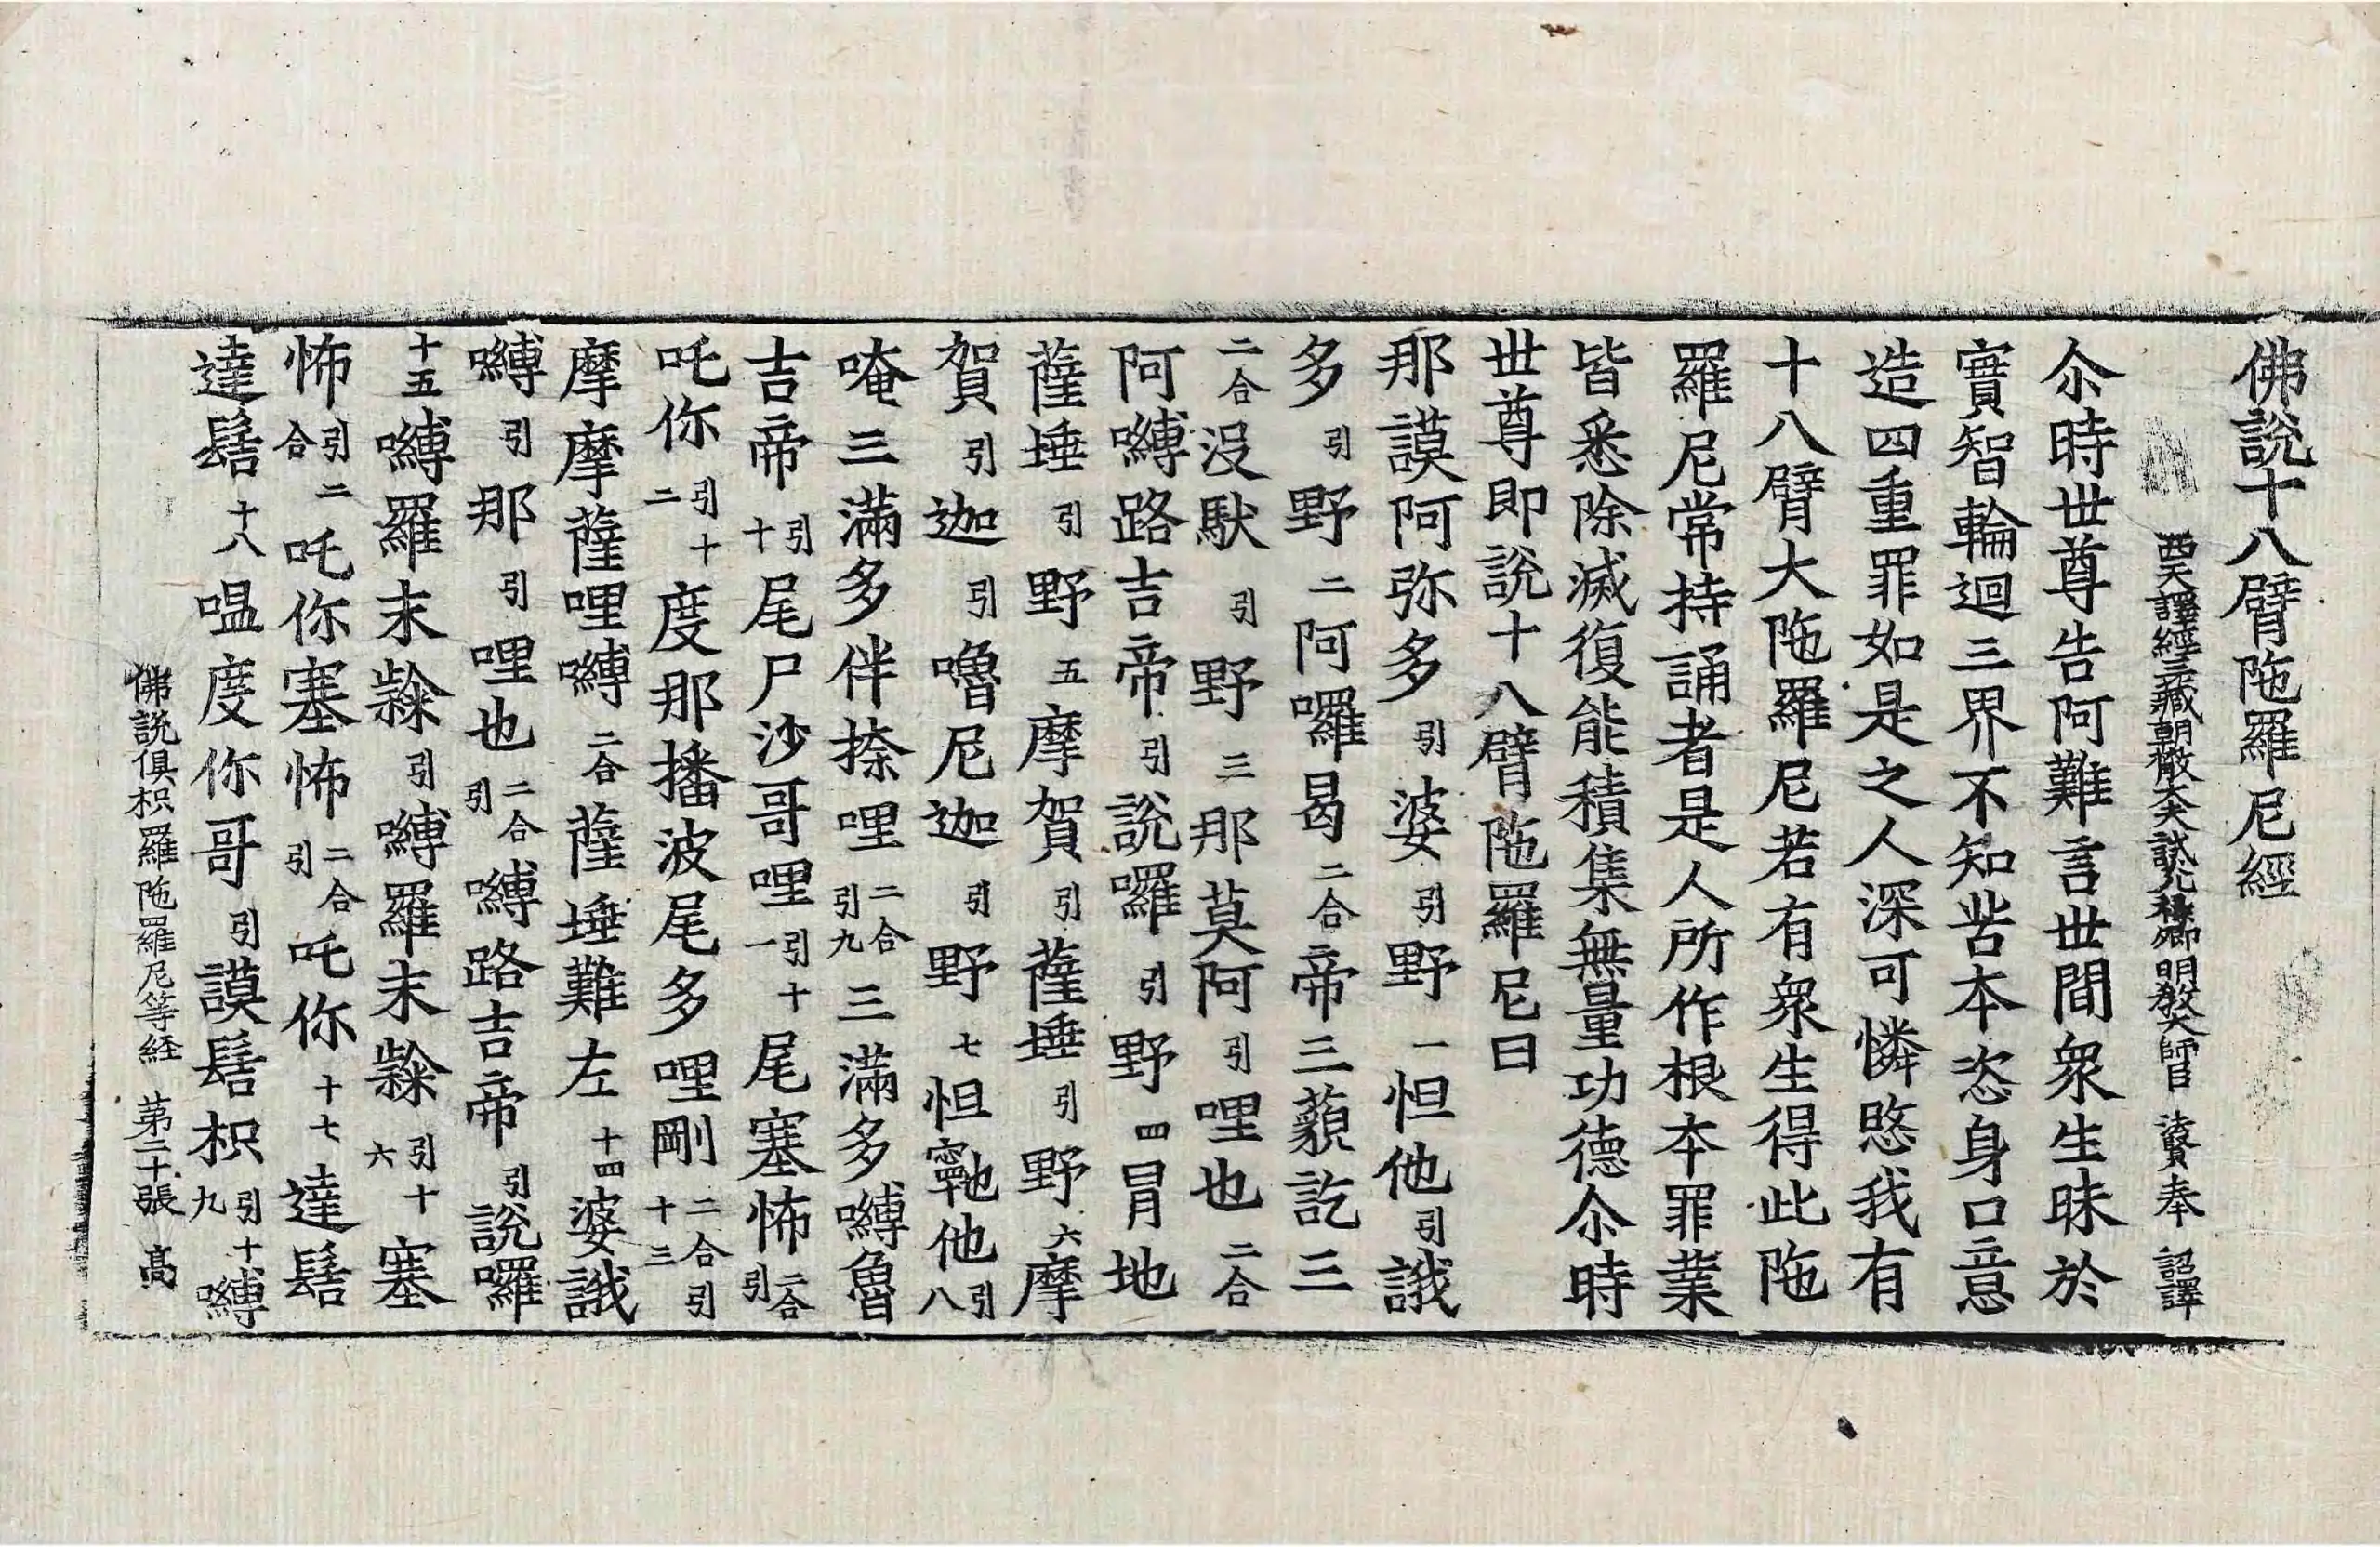 佛說十八臂陁羅尼經
西天譯經三藏朝散大夫試光祿卿明教大師臣法賢奉 詔譯
尒時世尊告阿難言世間衆生昧於
實智輪迴三界不知苦本恣身口意
造四重罪如是之人深可憐愍我有
十八臂大陁羅尼若有衆生得此陁
羅尼常持誦者是人所作根本罪業
皆悉除滅復能積集無量功德尒時
世尊即說十八臂陁羅尼曰
那謨阿弥多引婆引野一怛他引誐
多引野二阿囉曷二合帝三藐訖三
二合没馱引野三那莫阿引哩也二合
阿嚩路吉帝引說囉引野四冒地
薩埵引野五摩賀引薩埵引野六摩
賀引迦引嚕尼迦引野七怛寧他他引八
唵三滿多伴捺哩二合引九三滿多嚩魯
吉帝引十尾尸沙哥哩引十一尾塞怖二合引
吒你引十二度那播波尾多哩剛二合引十三
摩摩薩哩嚩二合薩埵難左十四婆誐
嚩引那引哩也二合引嚩路吉帝引說囉
十五嚩羅末𪗶引嚩羅末𪗶引十六塞
怖引二合吒你塞怖二合引吒你十七達髻
達髻十八嗢度你哥引謨髻枳引十九嚩
佛說俱枳羅陁羅尼等経 第二十張 髙